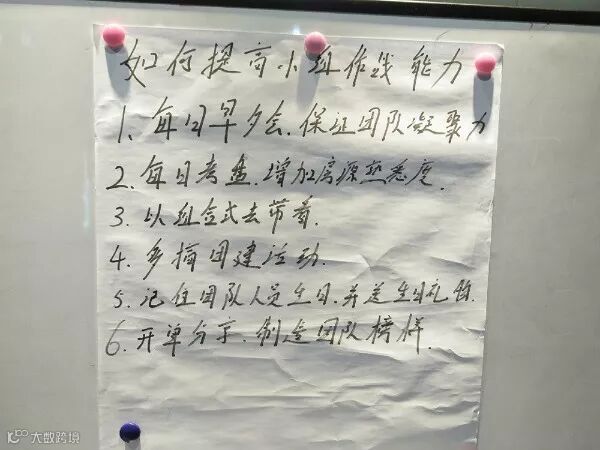 如何提高小组作战能力
1、每日早夕会.保证团队凝聚力
2.每日考盘.增加房源熟悉度.
3.以组合式去带看.
4.多搞团建活动.
5.记住团队人员生日.并送生日礼物.
6.开单分享.制造团队榜样.
大数跨境